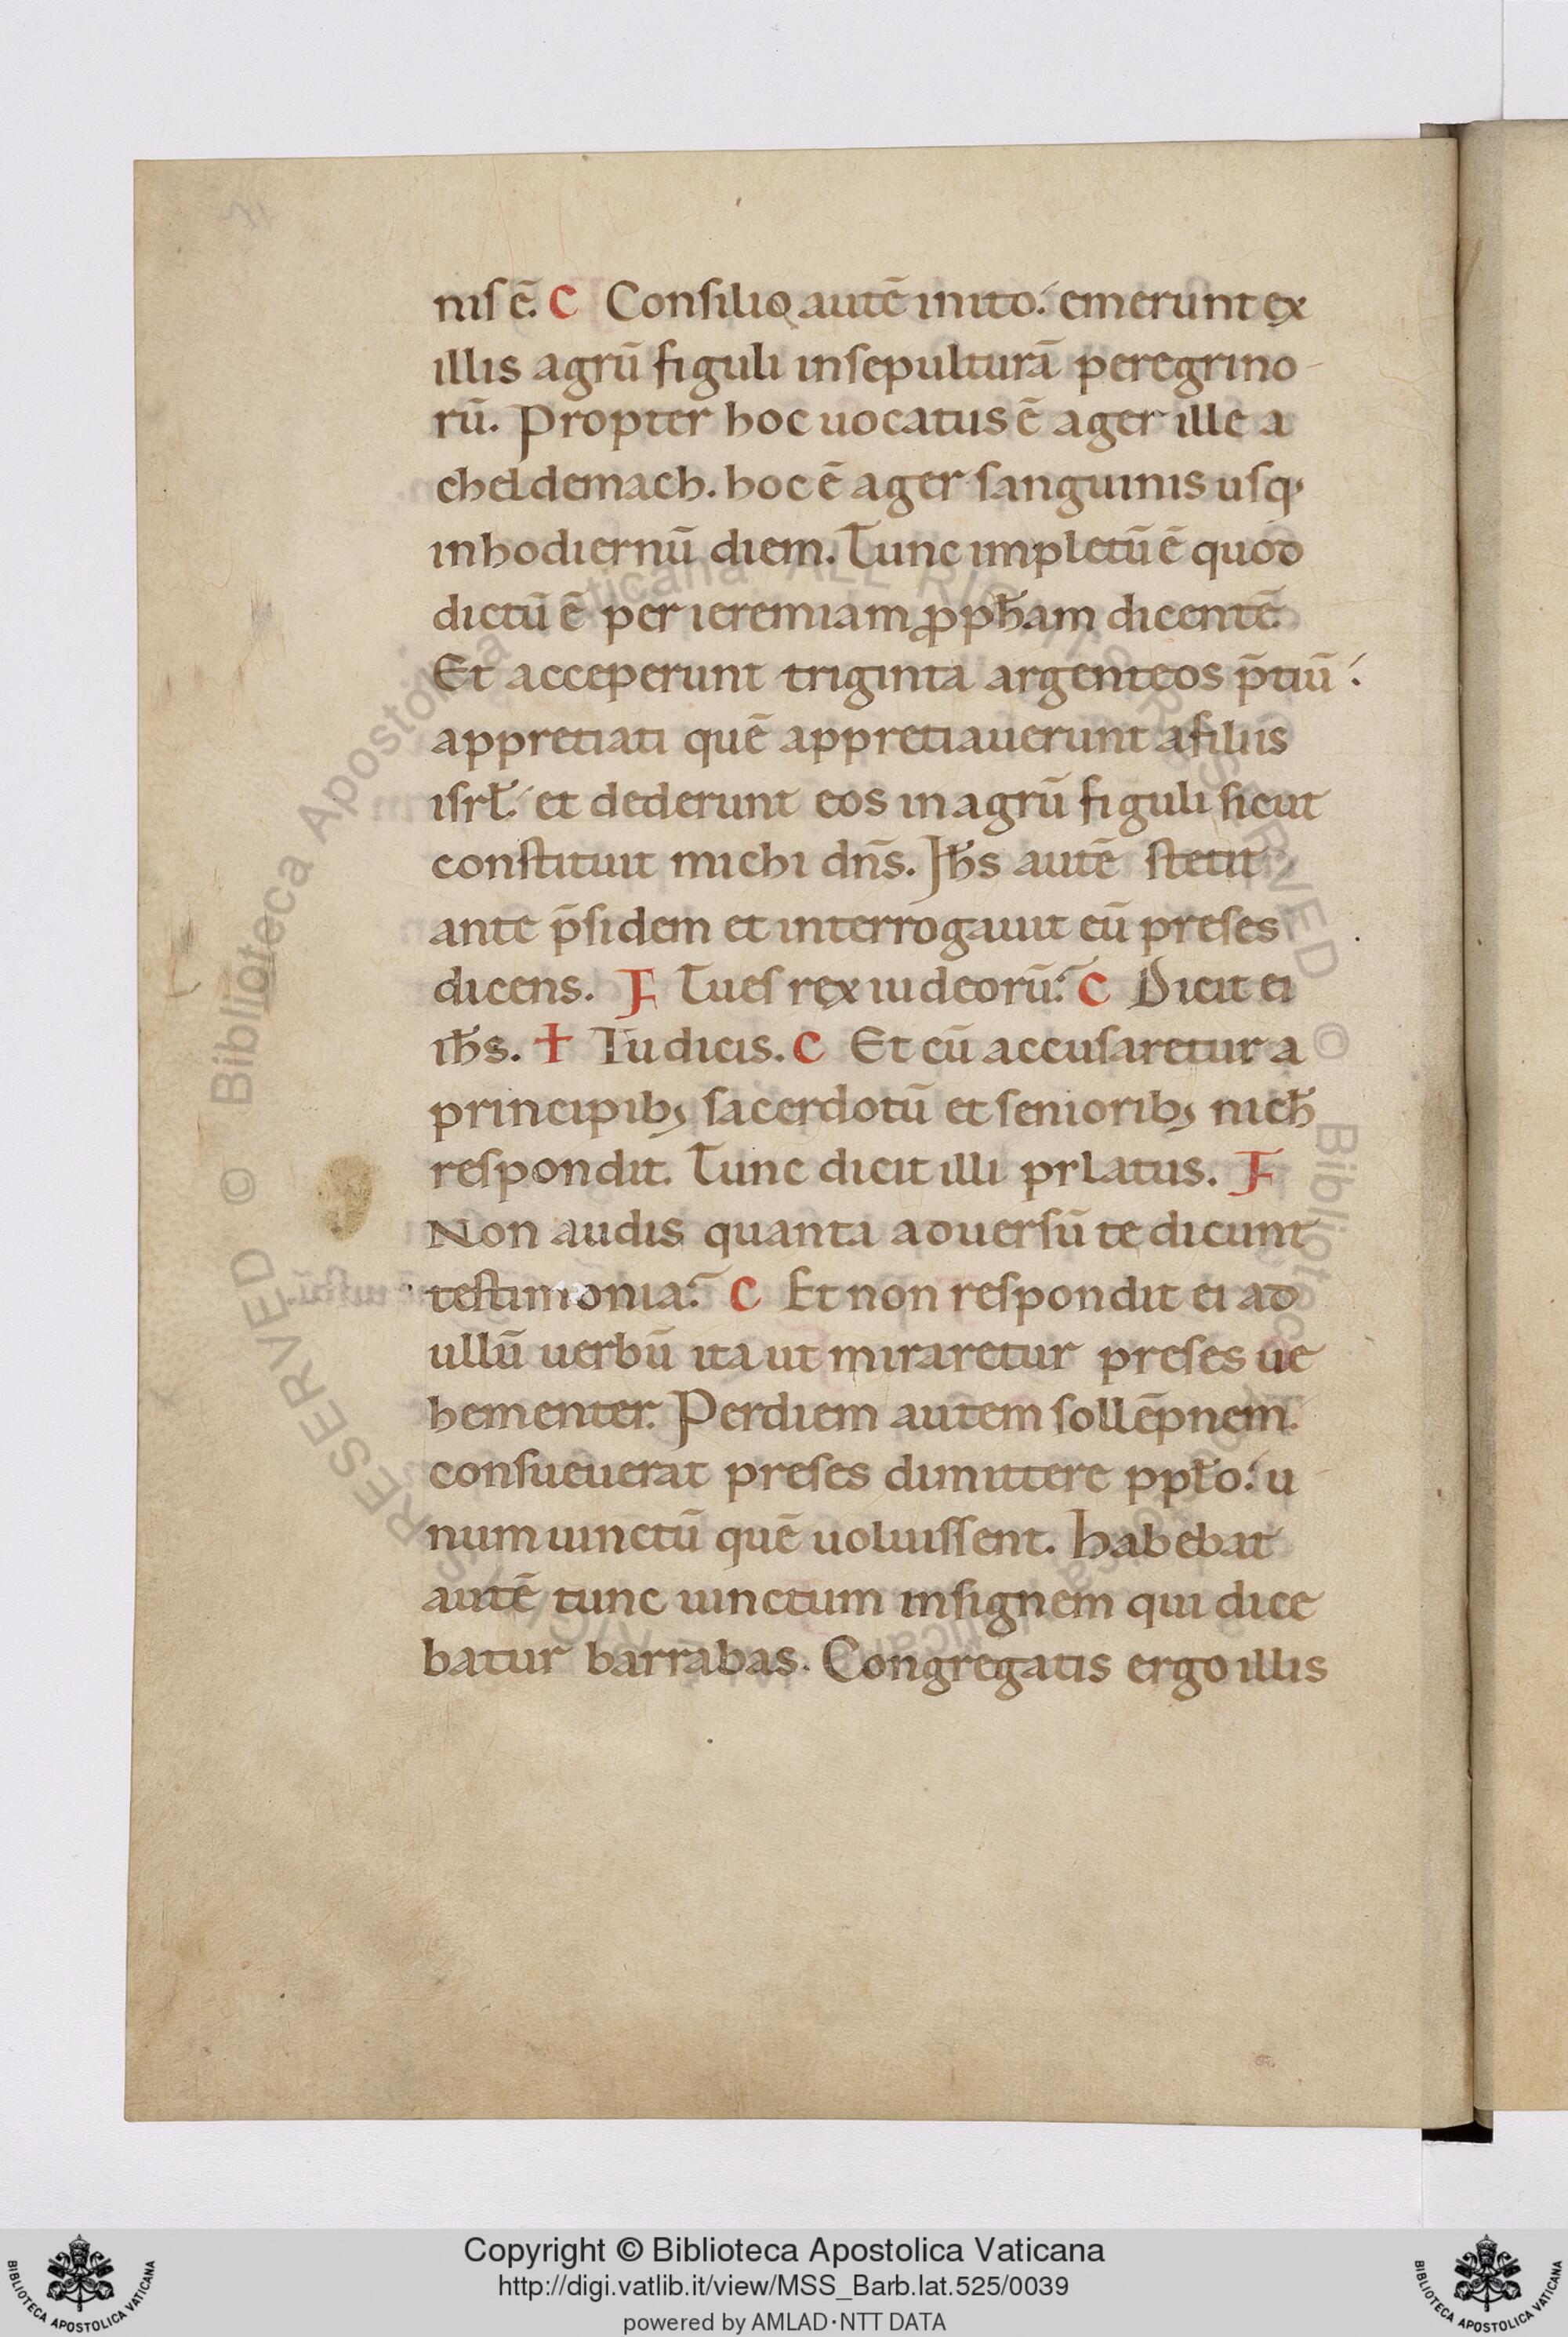 nis ē. C Consilio autē inito: emerunt ex
illis agrū figuli in sepulturā peregrino
rū. Propter hoc uocatus ē ager ille a
cheldemach. hoc ē ager sanguinis usq;
in hodiernū diem. Tunc impletū ē quod
dictū ē per ieremiam ꝓpħam dicentē
Et acceperunt triginta argenteos p̄tiū:
appretiati quē appretiauerunt a filiis
isrł. et dederunt eos in agrū figuli sicut
constituit michi dn̄s. Iħs autē stetit
ante p̄sidem et interrogauit eū preses
dicens. F Tu es rex iudeorū: C Dicit ei
iħs. † Tu dicis. C Et cū accusaretur a
principib; sacerdotū et seniorib; nicħ
respondit. Tunc dicit illi prlatus. F
Non audis quanta aduersū te dicunt
testimonia: C Et non respondit ei ad
ullū uerbū ita ut miraretur preses ue
hementer. Per diem autem sollēpnem.
consueuerat preses dimittere ppło: u
num uinctū quē uoluissent. habebat
autē tunc uinctum insignem qui dice
batur barrabas. Congregatis ergo illis
Copyright © Biblioteca Apostolica Vaticana
http://digi.vatlib.it/view/MSS_Barb.lat.525/0039
powered by AMLAD·NTT DATA
BIBLIOTECA APOSTOLICA VATICANA
BIBLIOTECA APOSTOLICA VATICANA